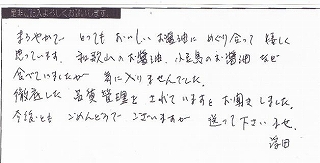 まろやかで とっても おいしい お醤油に めぐり合って 嬉しく
思っています。 和歌山のお醤油、小豆島のお醤油など
食べていましたが 気に入りませんでした。
徹底した 品質管理を されていますと お聞きしました。
今後とも ごめんどうで ございますが 送って下さいませ。